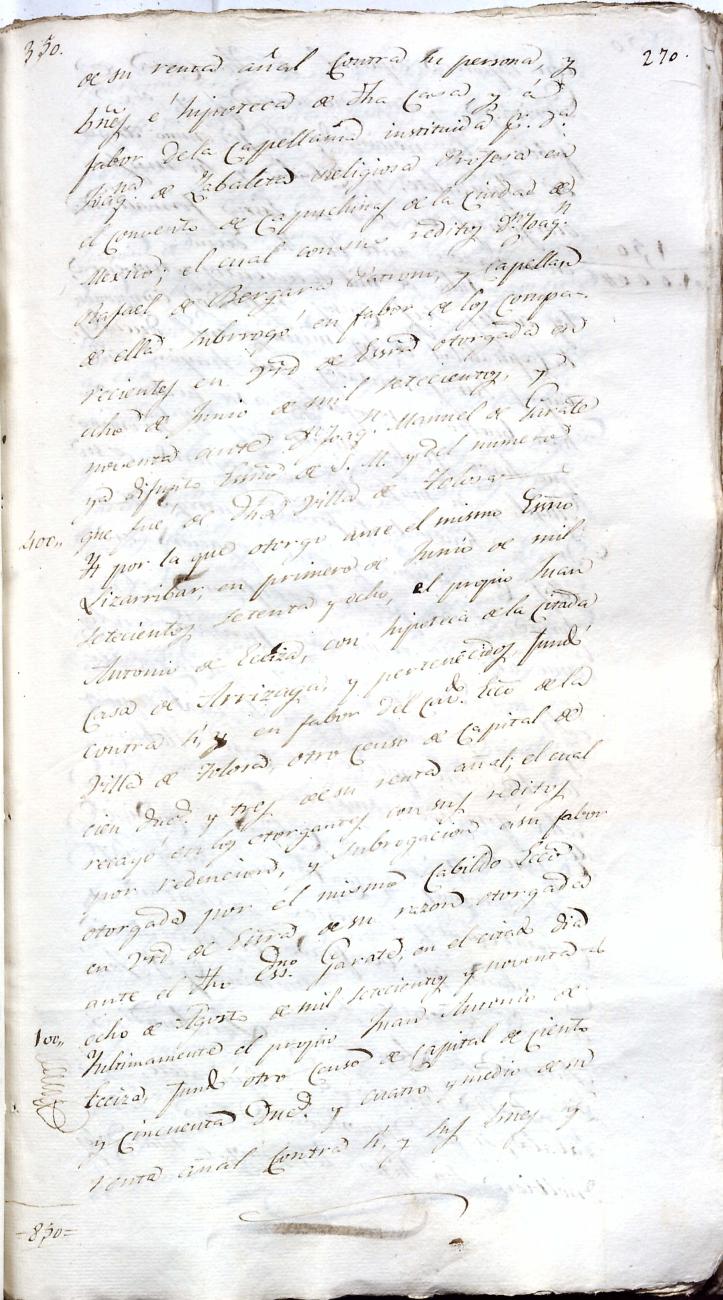 350.
270.
de su renta añal contra su persona, y
bñes é hipoteca de dha Casa, y á
fabor dela Capellania instituida pr. Da.
Joaqna. de Zabaleta Religiosa Profesa en
el convento de Capuchinas de la Ciudad de
Mexico; el cual con sus reditos Dn. Joaqn.
Rafael de Bergara Patrono, y Capellan
de ella subrrogó en fabor de los compa-
recientes en Vrd de Essra otorgada en
ocho de Junio de mil setecientos, y
noventa ante Dn. Joaqn. Manuel de Garate
ya difunto Essno de S. M. y del numero
que fue, de dha Villa de Tolosa
400,,
Yt por la que otorgo ante el mismo Essno
Lizarribar, en primero de Junio de mil
setecientos setenta y ocho, el propio Juan
Antonio de Leciza, con hipoteca de la citada
Casa de Arrizaga, y pertenecidos fundó
contra si, y en fabor del Cavdo. Ecco de la
Villa de Tolosa, otro censo de Capital de
cien Ducs. y tres de su renta añal; el cual
recayó en los otorgantes con sus reditos
por redencion, y subrogacion á su fabor
otorgada por el mismo Cabildo Ecco
en Vrd de Essra de su razon otorgada
ante el dho Essno. Garate, en el citado dia
ocho de Agosto de mil setecientos y noventa
100,,
Ultimamente el propio Juan Antonio de
Leciza, fundó otro Censo de Capital de ciento
y cincuenta Ducs. y cuatro y medio de su
renta añal contra si, y sus bñes y
=850=